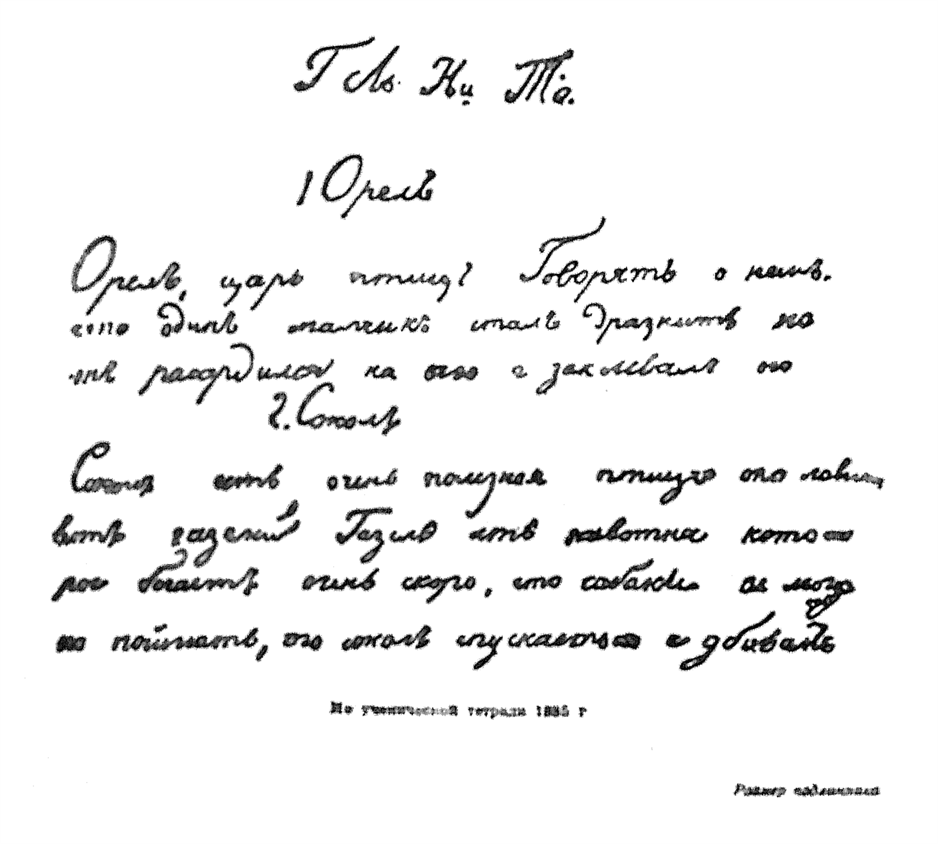 Г Ль. Ни. То.
1 Орелъ
Орелъ, царь птицъ Говорятъ о немъ.
что одинъ мальчикъ сталъ дразнить но
онъ расердился на его и заклевалъ его
2. Соколъ
Соколъ есть очень полезная птица она ловитъ
газели Газель есть животная кото
рое бѣгаетъ очень скоро, что собаки не могу
поймать, его соколъ спускается и убиваетъ
Из ученической тетради 1835 г
Размер подлинника